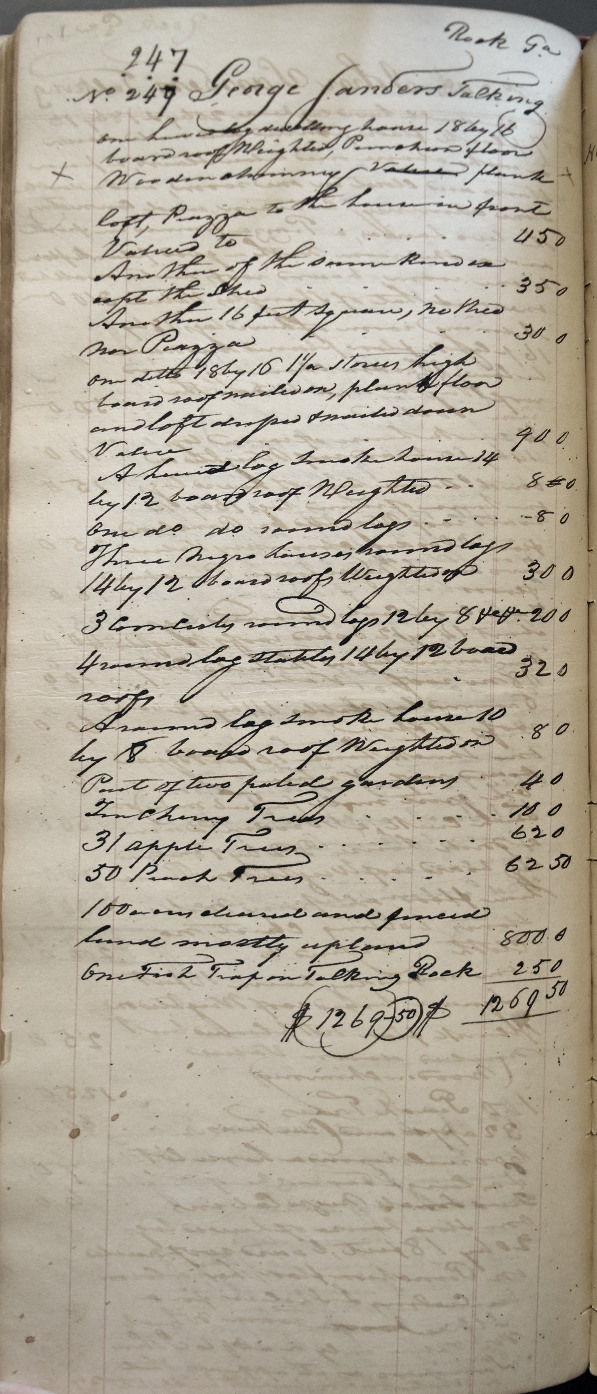 Rock Ga
247
No 249 George Sanders Talking
one hewed log dwelling house 18 by 16
board roof Weighted, Puncheon floor
Wooden chimney Valued plank
loft, Piazza to the house in front
Valued to 450
Another of the same kind ex
cept the Shed 350
Another 16 feet Square, no Shed
nor Piazza 300
one ditto 18 by 16 1½ stories high
board roof nailed on, plank floor
and loft droped & nailed down
Value 900
A hewed log smoke house 14
by 12 board roof Weighted 80
One do do round logs 80
Three Negro houses round logs
14 by 12 board roofs Weighted on 300
3 Corncribs round logs 12 by 8 200
4 round log stables 14 by 12 board 320
roofs
A round log smoke house 10
by 8 board roof Weighted on 80
Part of two paled gardens 40
Ten Cherry Trees 100
31 apple Trees 620
50 Peach Trees 62 50
100 acres cleared and fenced
land mostly upland 8000
One Fish Trap on Talking Rock 250
$ 1269-50 $ 1269 50